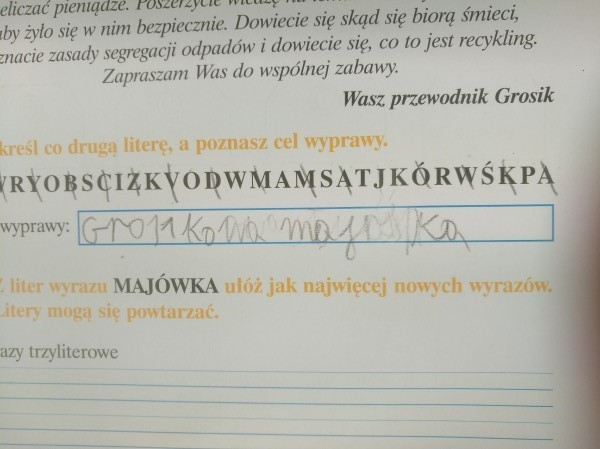 eliczać pieniądze. Poszerzycie wiedzę na
aby żyło się w nim bezpiecznie. Dowiecie się skąd się biorą śmieci,
znacie zasady segregacji odpadów i dowiecie się, co to jest recykling.
Zapraszam Was do wspólnej zabawy.
Wasz przewodnik Grosik
kreśl co drugą literę, a poznasz cel wyprawy.
RYOBSCIZKYODWMAMSATJKÓRWŚKPA
wyprawy: Grosikowa majówka
Z liter wyrazu MAJÓWKA ułóż jak najwięcej nowych wyrazów.
Litery mogą się powtarzać.
azy trzyliterowe